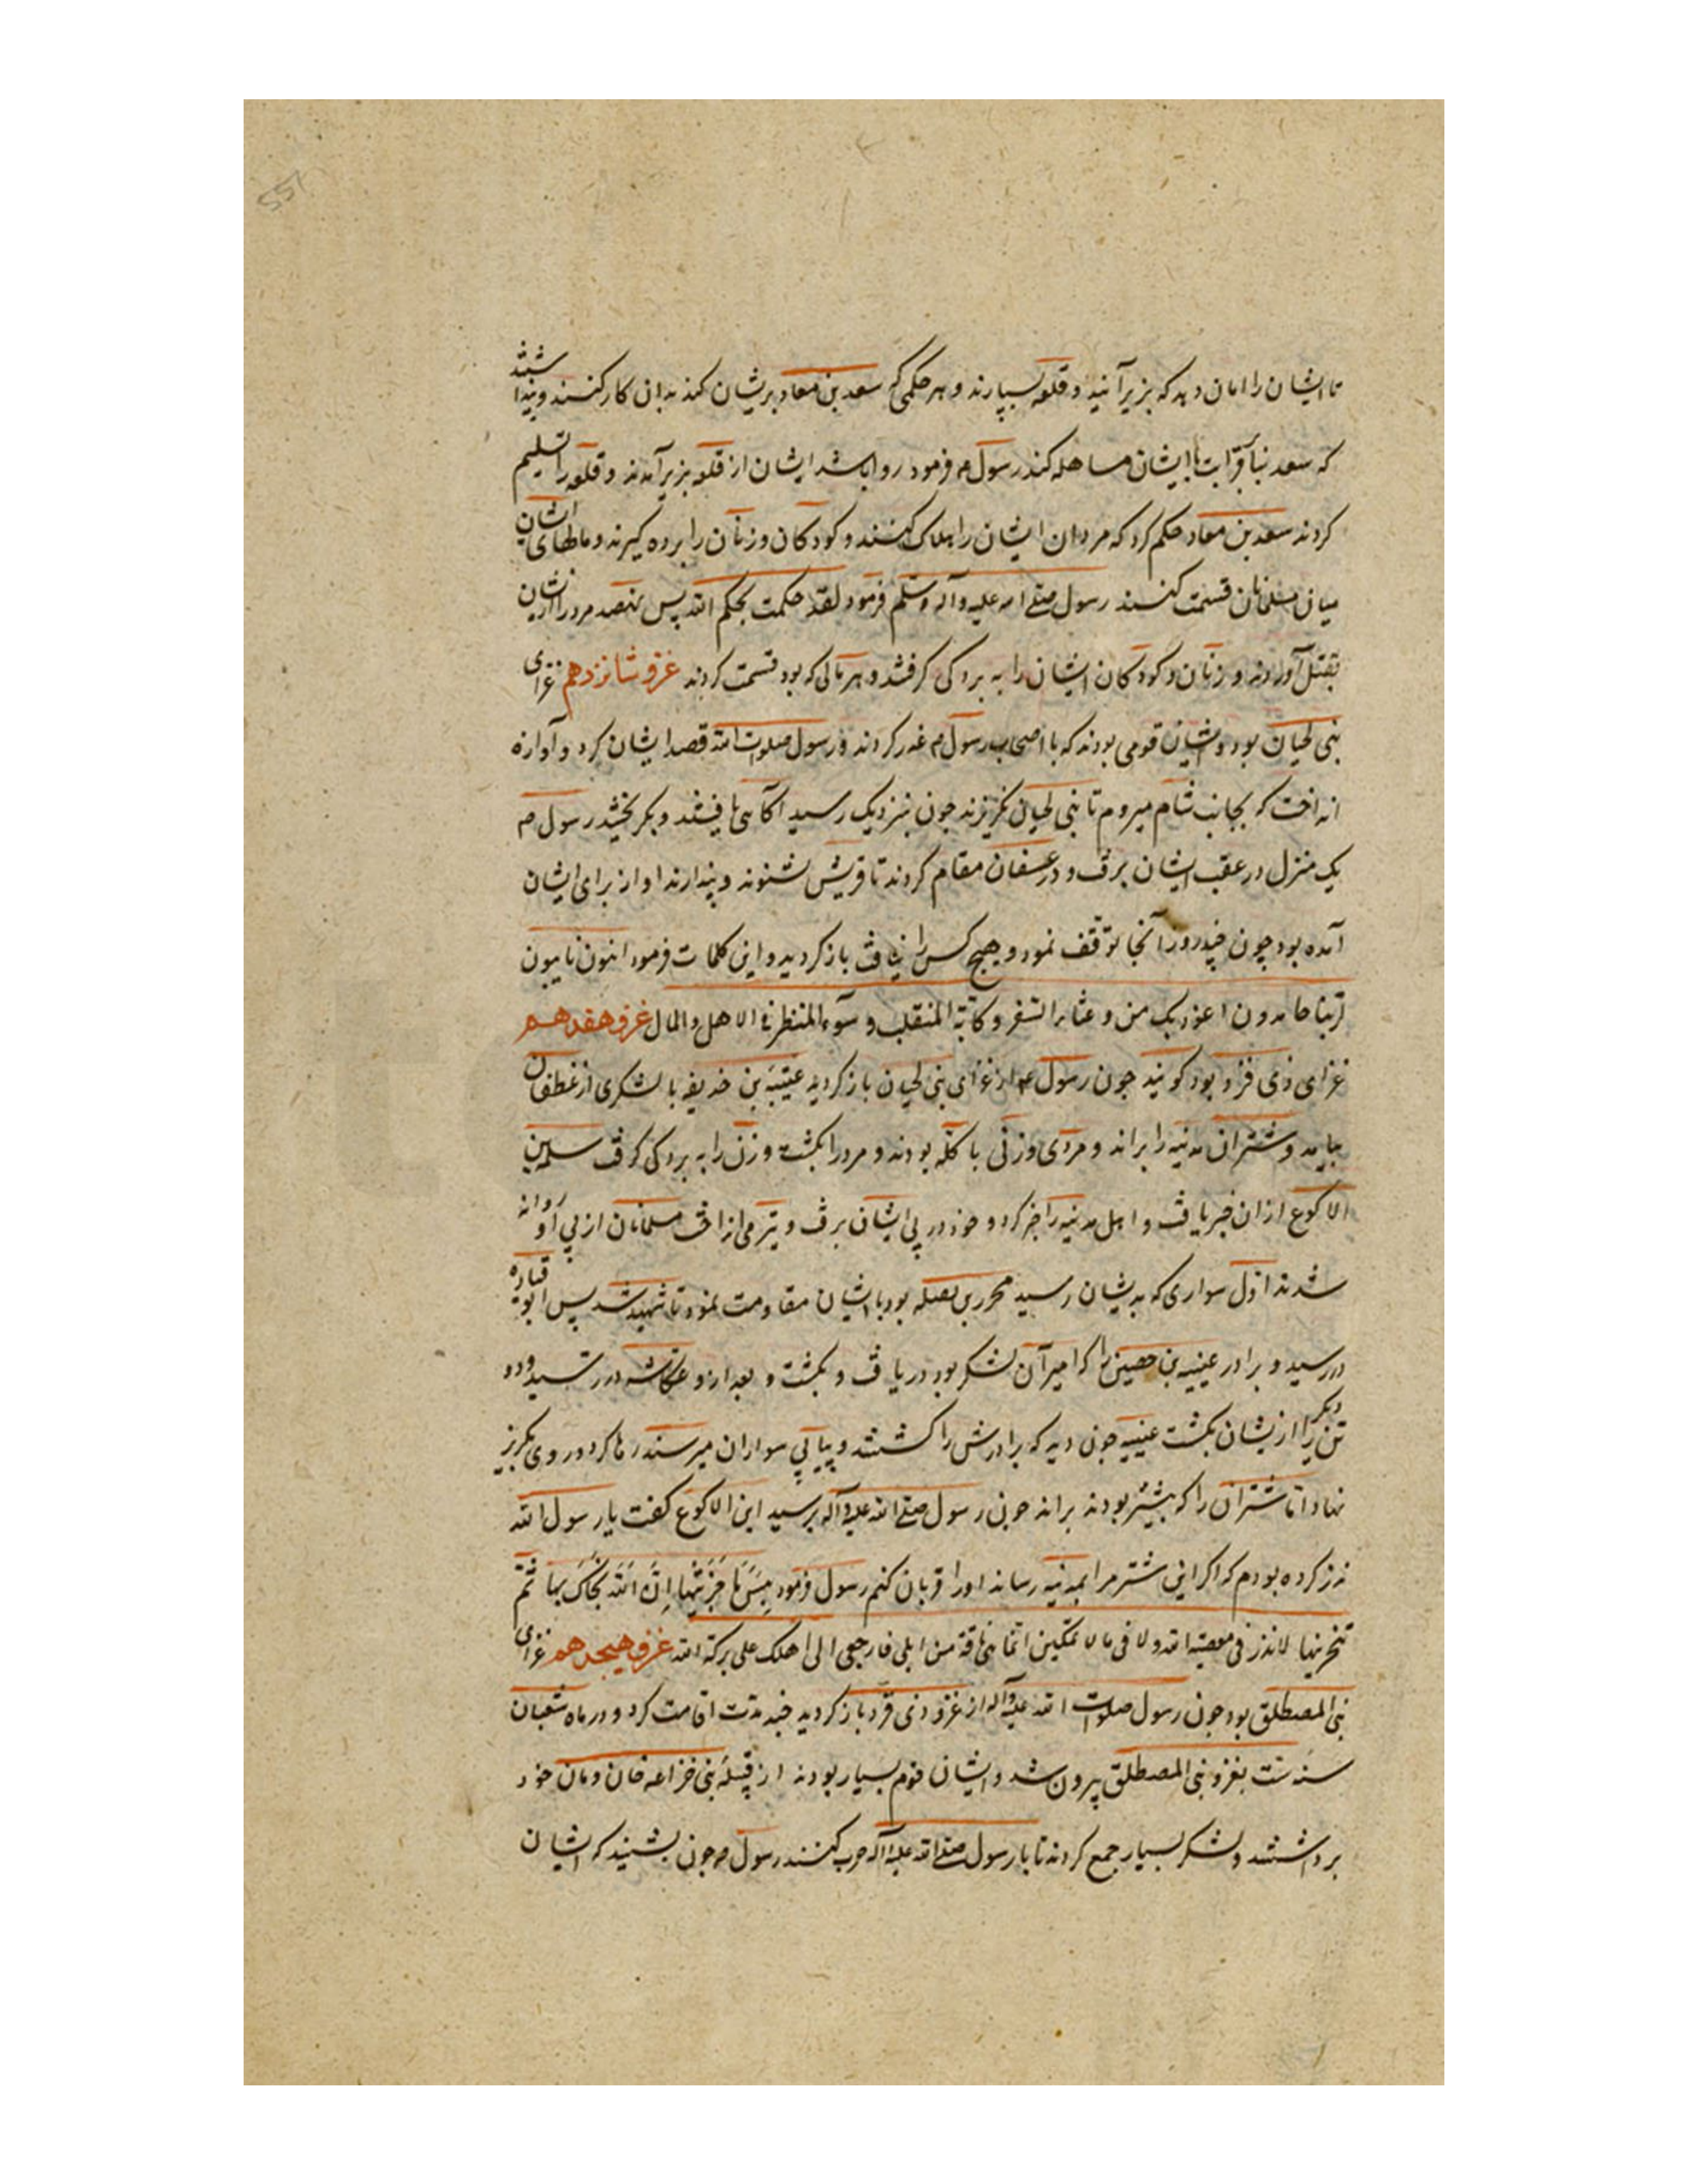 تا ایشان را امان دهد که بزیر آیند و قلعه بسپارند و هر حکمی که سعد بن معاد بریشان کند بدان کار کنند و پنداشتند
که سعد بنا بر قرابت با ایشان مساهله کند رسول م فرمود روا باشد ایشان از قلعه بزیر آمدند و قلعه را تسلیم
کردند سعد بن معاد حکم کرد که مردان ایشان را هلاک کنند و کودکان و زنان را برده گیرند و مالهای ایشان
میان مسلمانان قسمت کنند رسول صلی الله علیه و آله وسلم فرمود لقد حکمت بحکم الله پس مرد را از ایشان
بقتل آوردند و زنان و کودکان ایشان را به بردگی گرفتند و هر مالی که بود قسمت کردند غزو شانزدهم غزای
بنی لحیان بود و ایشان قومی بودند که با اصحاب رسول م غدر کردند و رسول صلوات الله قصد ایشان کرد و آوازه
انداخت که بجانب شام میروم تا بنی لحیان نگریزند جون بنزدیک رسید آگاهی یافتند و بگریختند رسول م
یک منزل در عقب ایشان برفت و در عسفان مقام کردند تا قریش بشنوند و پندارند او از برای ایشان
آمده بود چون چند روز آنجا توقف نمود و هیچ کس را نیافت باز گردید و این کلمات فرمود ائبون تایبون
لربنا حامدون اعوذ بک من وعثاء السفر و کآبة المنقلب و سوء المنظر فی الاهل والمال غزو هفدهم
غزای ذی قرد بود گویند جون رسول ع از غزای بنی لحیان باز گردید عیینه بن حذیفه با لشکری از غطفان
بیامد و شتران مدنیه را براند و مردی و زنی با گله بودند و مرد را بکشت و زن را به بردگی گرفت سلمه بن
الاکوع ازان خبر یافت و اهل مدنیه را خبر کرد و خود در پی ایشان برفت و تیر می انداخت مسلمانان از پی او روانه
شدند اول سواری که بدیشان رسید محرر بن نضله بود با ایشان مقاومت نمود تا شهید شد پس ابو قتاده
در رسید و برادر عیینه بن حصین را که امیر آن لشکر بود دریافت و بکشت و بعد ازو عکاشه در رسید و دو
تن دیگر را از یشان بکشت عیینه جون دید که برادرش را کشتند و پیاپی سواران میرسند رها کرد و روی بگریز
نهاد اما شتران را که پیشتر بودند براند جون رسول صلی الله علیه و آله برسید ابن الاکوع گفت یا رسول الله
نذر کرده بودم که اگر این شتر مرا بمدنیه رساند او را قربان کنم رسول فرمود بئس ما جزیتها ان الله نجاک بها ثم
تنحریها لا نذر فی معصیة الله و لا فی ما لا تملکین انما هی ناقة من ابلی فارجعی الی اهلک علی برکة الله غزو هیجدهم غزای
بنی المصطلق بود جون رسول صلوات الله علیه و آله از غزو ذی قرد باز گردید چند مدت اقامت کرد و در ماه شعبان
سنه ست بغزو بنی المصطلق بیرون شد و ایشان قوم بسیار بودند از قبیله بنی خزاعه خان و مان خود
برداشتند و لشکر بسیار جمع کردند تا با رسول صلی الله علیه و آله حرب کنند رسول م جون بشنید که ایشان